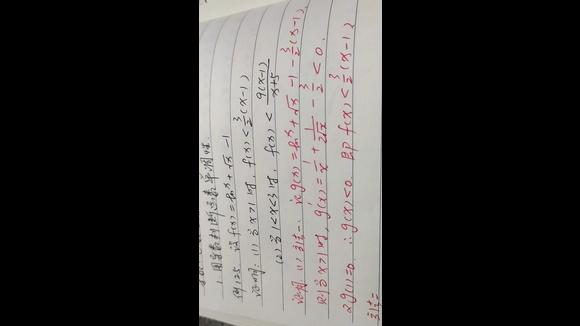 1.用导数判断函数单调性.
例125 设f(x)=lnx+√x-1
证明:(1)当x>1时,f(x)<3/2(x-1)
(2)当1<x<3时,f(x)<9(x-1)/(x+5)
证明:(1)法一:记g(x)=lnx+√x-1-3/2(x-1),
则当x>1时,g'(x)=1/x+1/(2√x)-3/2<0.
又g(1)=0 ∴g(x)<0 即f(x)<3/2(x-1)
法二